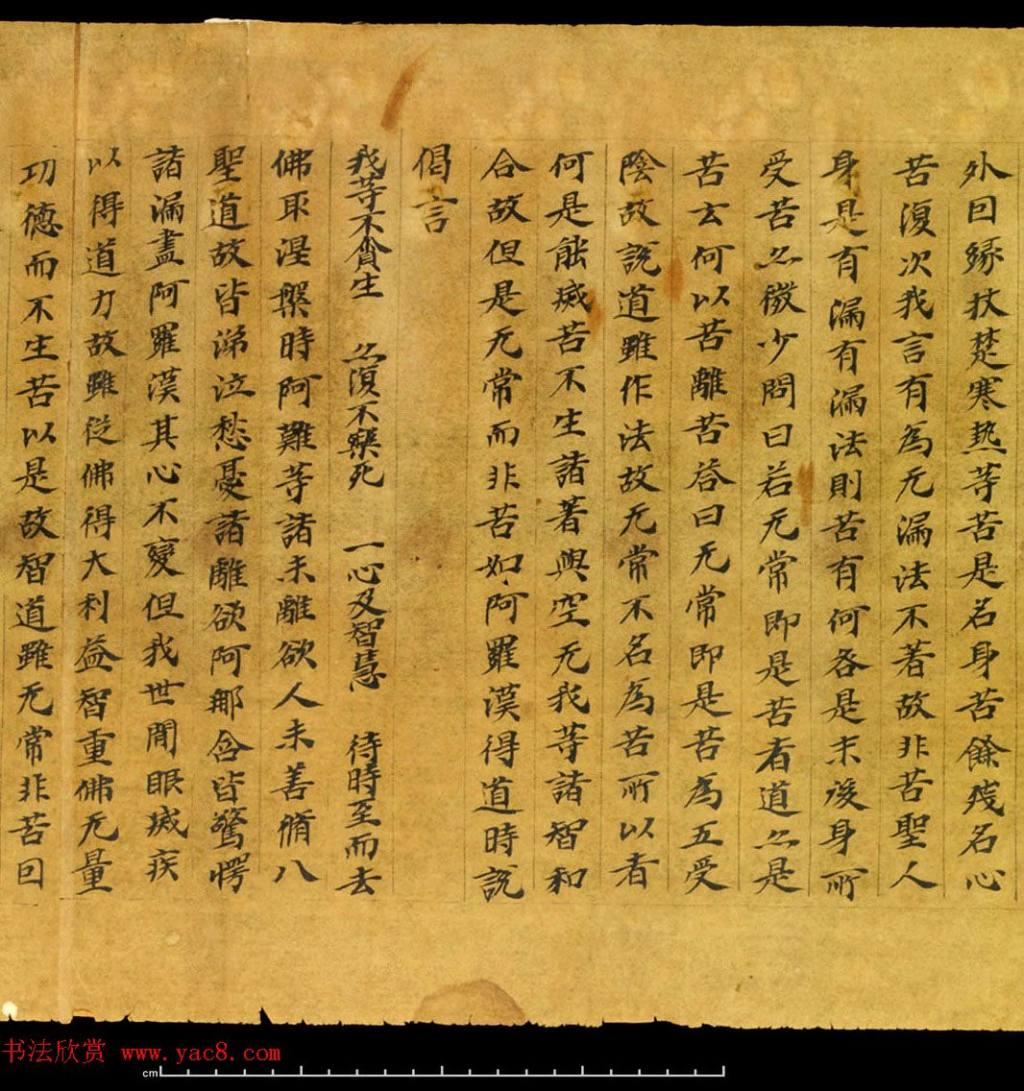 外因緣扙楚寒热等苦是名身苦餘残名心
苦復次我言有為无漏法不著故非苦聖人
身是有漏有漏法則苦有何咎是末後身所
受苦亦微少問曰若无常即是苦者道亦是
苦云何以苦離苦答曰无常即是苦為五受
陰故說道雖作法故无常不名為苦所以者
何是能滅苦不生諸著與空无我等諸智和
合故但是无常而非苦如阿羅漢得道時說
偈言
我等不貪生 亦復不樂死 一心及智慧 待時至而去
佛取涅槃時阿難等諸未離欲人未善脩八
聖道故皆涕泣愁憂諸離欲阿那含皆驚愕
諸漏盡阿羅漢其心不變但我世閒眼滅疾
以得道力故雖從佛得大利益智重佛无量
功德而不生苦以是故智道雖无常非苦因
书法欣赏 www.yac8.com
cm